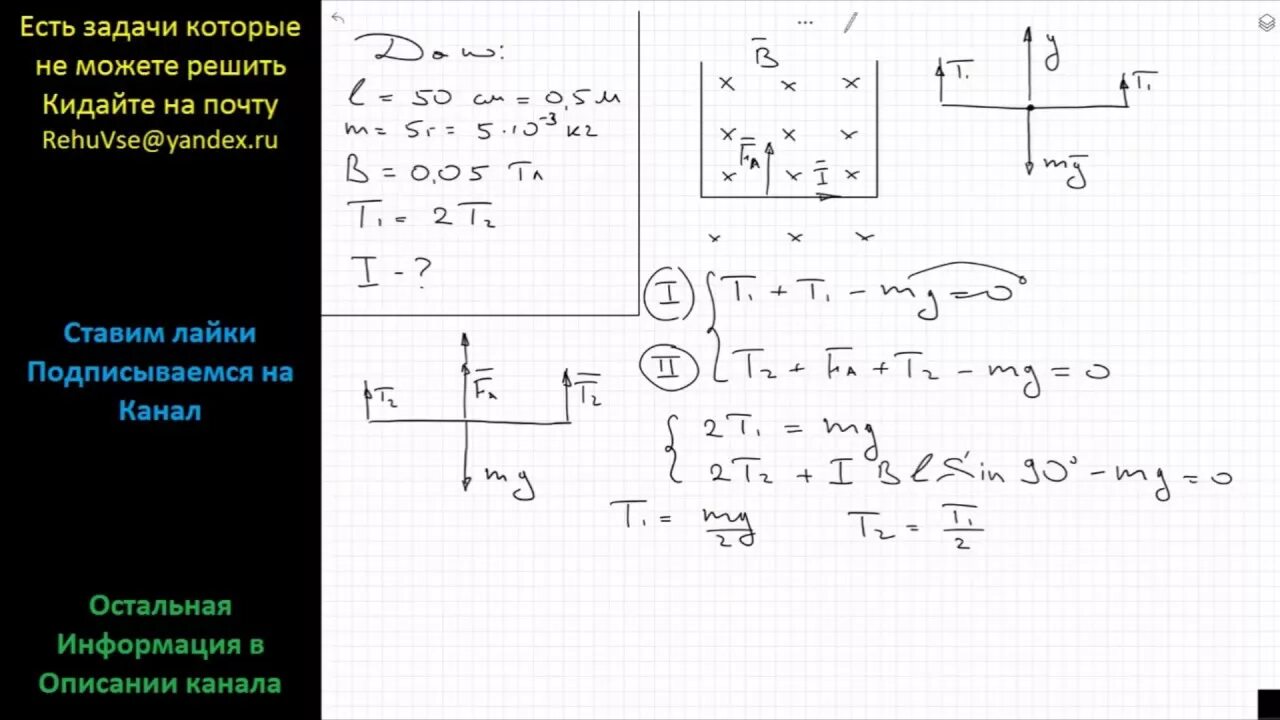 Есть задачи которые
не можете решить
Кидайте на почту
RehuVse@yandex.ru
Ставим лайки
Подписываемся на
Канал
Остальная
Информация в
Описании канала
Дано:
l = 50 см = 0,5 м
m = 5г = 5·10⁻³ кг
B = 0,05 Тл
T₁ = 2T₂
I - ?
B̄
F̄A
Ī
y
T̄₁
T̄₁
mḡ
T₂
F̄A
T̄₂
mg
I T₁ + T₁ - mg = 0
II T₂ + FA + T₂ - mg = 0
2T₁ = mg
2T₂ + I B l Sin 90° - mg = 0
T₁ = mg/2 T₂ = T₁/2